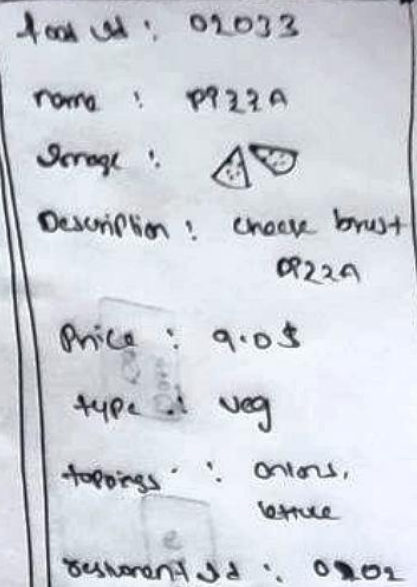 food id : 02033
name : PIZZA
Image :
Description : cheese brust
PIZZA
Price : 9.0$
type : veg
toppings : onions,
lettuce
restorent Id : 0202